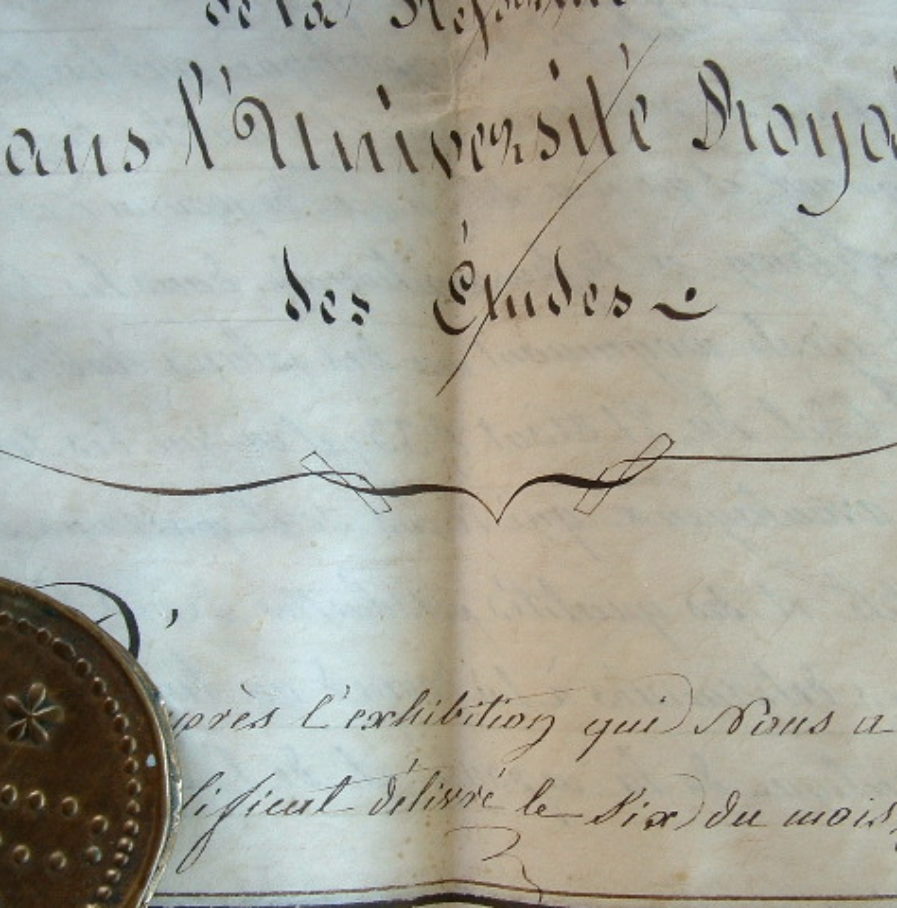 de la Réforme
ans l'Université Roya
des Études
D'
près l'exhibition qui Nous a
tificat délivré le Six du mois